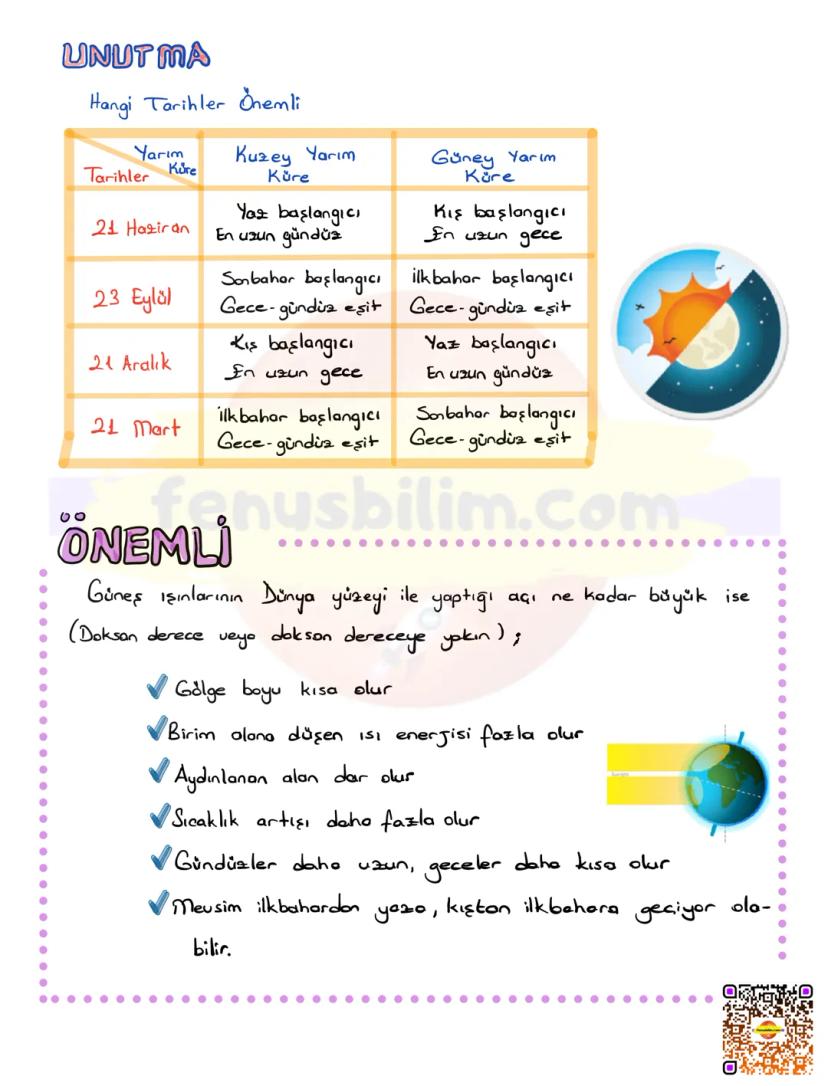 UNUTMA
Hangi Tarihler Önemli
Yarım Küre
Tarihler
Kuzey Yarım Küre
Güney Yarım Küre
21 Haziran
Yaz başlangıcı
En uzun gündüz
Kış başlangıcı
En uzun gece
23 Eylül
Sonbahar başlangıcı
Gece-gündüz eşit
İlkbahar başlangıcı
Gece-gündüz eşit
21 Aralık
Kış başlangıcı
En uzun gece
Yaz başlangıcı
En uzun gündüz
21 Mart
İlkbahar başlangıcı
Gece-gündüz eşit
Sonbahar başlangıcı
Gece-gündüz eşit
fenusbilim.com
ÖNEMLİ
Güneş ışınlarının Dünya yüzeyi ile yaptığı açı ne kadar büyük ise
(Doksan derece veya doksan dereceye yakın);
Gölge boyu kısa olur
Birim alana düşen ısı enerjisi fazla olur
Aydınlanan alan dar olur
Sıcaklık artışı daha fazla olur
Gündüzler daha uzun, geceler daha kısa olur
Mevsim ilkbahardan yaza, kıştan ilkbahara geçiyor ola-
bilir.